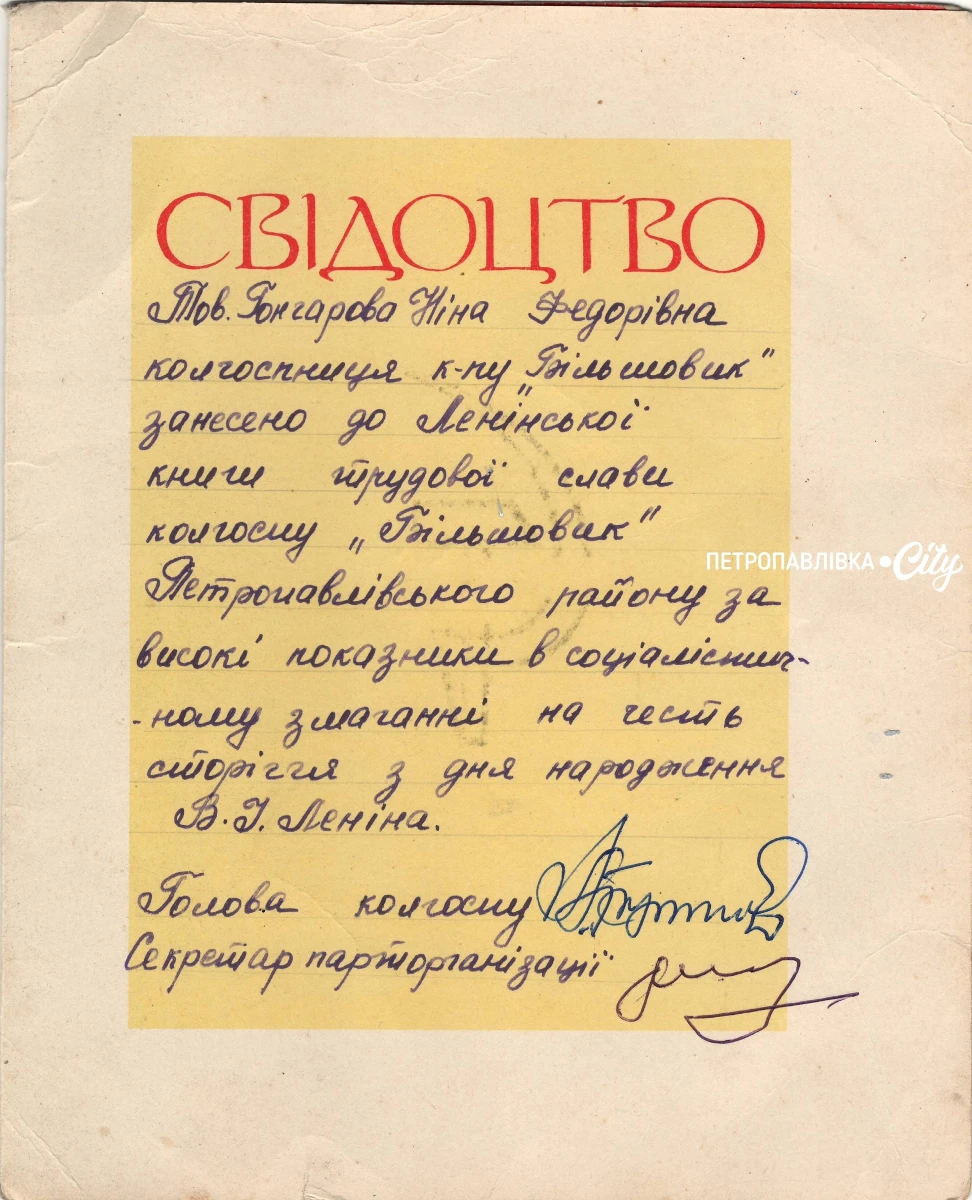 СВІДОЦТВО
Тов. Гончарова Ніна Федорівна
колгоспниця к-пу „Більшовик"
занесено до Ленінської
книги трудової слави
колгоспу „Більшовик"
Петропавлівського району за
високі показники в соціалістич-
-ному змаганні на честь
сторіччя з дня народження
В.І. Леніна.
Голова колгоспу
Секретар парторганізації
ПЕТРОПАВЛІВКА•City